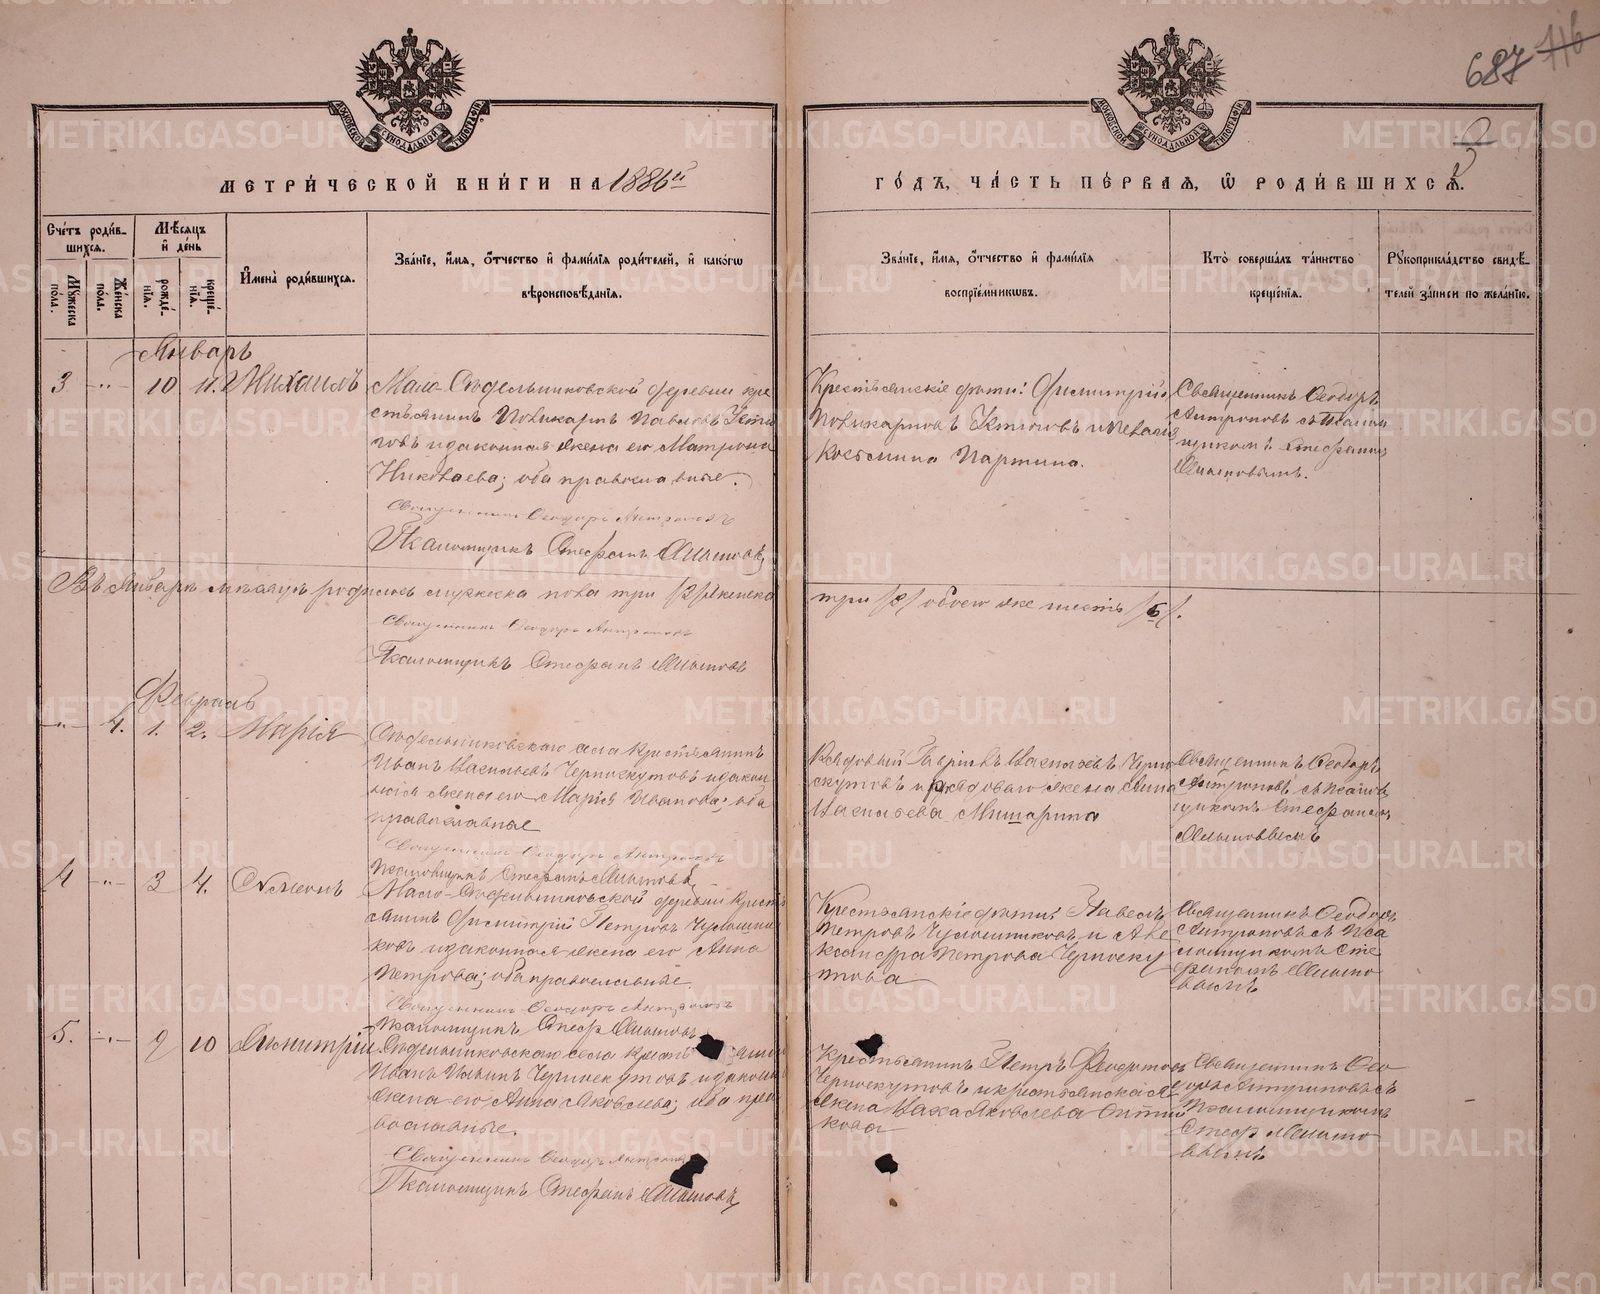 687 116
3
МЕТРИ́ЧЕСКОЙ КНИ́ГИ НА 1886й
ГО́ДЪ, ЧА́СТЬ ПЕ́РВАЯ, Ѡ РОДИ́ВШИХСЯ.
Сче́тъ роди́вшихся.
Му́жеска по́ла.
Же́нска по́ла.
Мѣ́сяцъ и҆ де́нь
рожде́нїя.
креще́нїя.
И҆мена̀ роди́вшихся.
Зва́нїе, и҆́мя, ѻ҆́тчество и҆ фами́лїя роди́телей, и҆ како́гѡ вѣроисповѣ́данїя.
Зва́нїе, и҆́мя, ѻ҆́тчество и҆ фами́лїя воспрїе́мникѡвъ.
Кто̀ соверша́лъ та́инство креще́нїя.
Рꙋкоприкла́дство свидѣ́телей за́писи по жела́нїю.
Январь
3 -"- 10 11. Михаилъ
Мало-Сѣдельниковской деревни кре
стьянинъ Поликарпъ Павловъ Устю
говъ и законная жена его Матрона
Николаева; оба православные.
Священникъ Ѳеодоръ Антроповъ
Псаломщикъ Стефанъ
Крестьянскіе дѣти: Димитрій
Поликарповъ Устюговъ и
Космина Партина.
Священникъ Ѳеодоръ
Антроповъ съ Псалом
щикомъ Стефаномъ
Въ Январѣ мѣсяцѣ родилось мужеска пола три /3/ женска
три /3/ обоего же шесть /6/.
Священникъ Ѳеодоръ Антроповъ
Псаломщикъ Стефанъ
Февраль
-"- 4. 1. 2. Марія
Сѣдельниковскаго села крестьянинъ
Иванъ Васильевъ Черноскутовъ и закон
ная жена его Марія Иванова; оба
православные
Священникъ Ѳеодоръ Антроповъ
Псаломщикъ Стефанъ
Рядовый Гавріилъ Васильевъ Черно
скутовъ и рядоваго жена Анна
Васильева Мишарина
Священникъ Ѳеодоръ
Антроповъ съ Псалом
щикомъ Стефаномъ
4 -"- 3 4. Симеонъ
Мало-Сѣдельниковской деревни крест
янинъ Димитрій Петровъ
ковъ и законная жена его Анна
Петрова; оба православные.
Священникъ Ѳеодоръ Антроповъ
Псаломщикъ Стеф
Крестьянскіе дѣти: Павелъ
Петровъ и Але
ксандра Петрова Черноску
това
Священникъ Ѳеодоръ
Антроповъ съ Пса
ломщикомъ Сте
фаномъ
5. -"- 9 10 Димитрій
Сѣдельниковскаго села крестьянинъ
Иванъ Ильинъ Черноскутовъ и законн
жена его Анна Яковлева; оба пра
вославные.
Священникъ Ѳеодоръ Антроповъ
Псаломщикъ Стефанъ
Крестьянинъ Петръ Ѳеодотовъ
Черноскутовъ и крестьянская
жена Яковлева
кова
Священникъ Ѳео
доръ Антроповъ съ
Псаломщикомъ
Стеф
METRIKI.GASO-URAL.RU